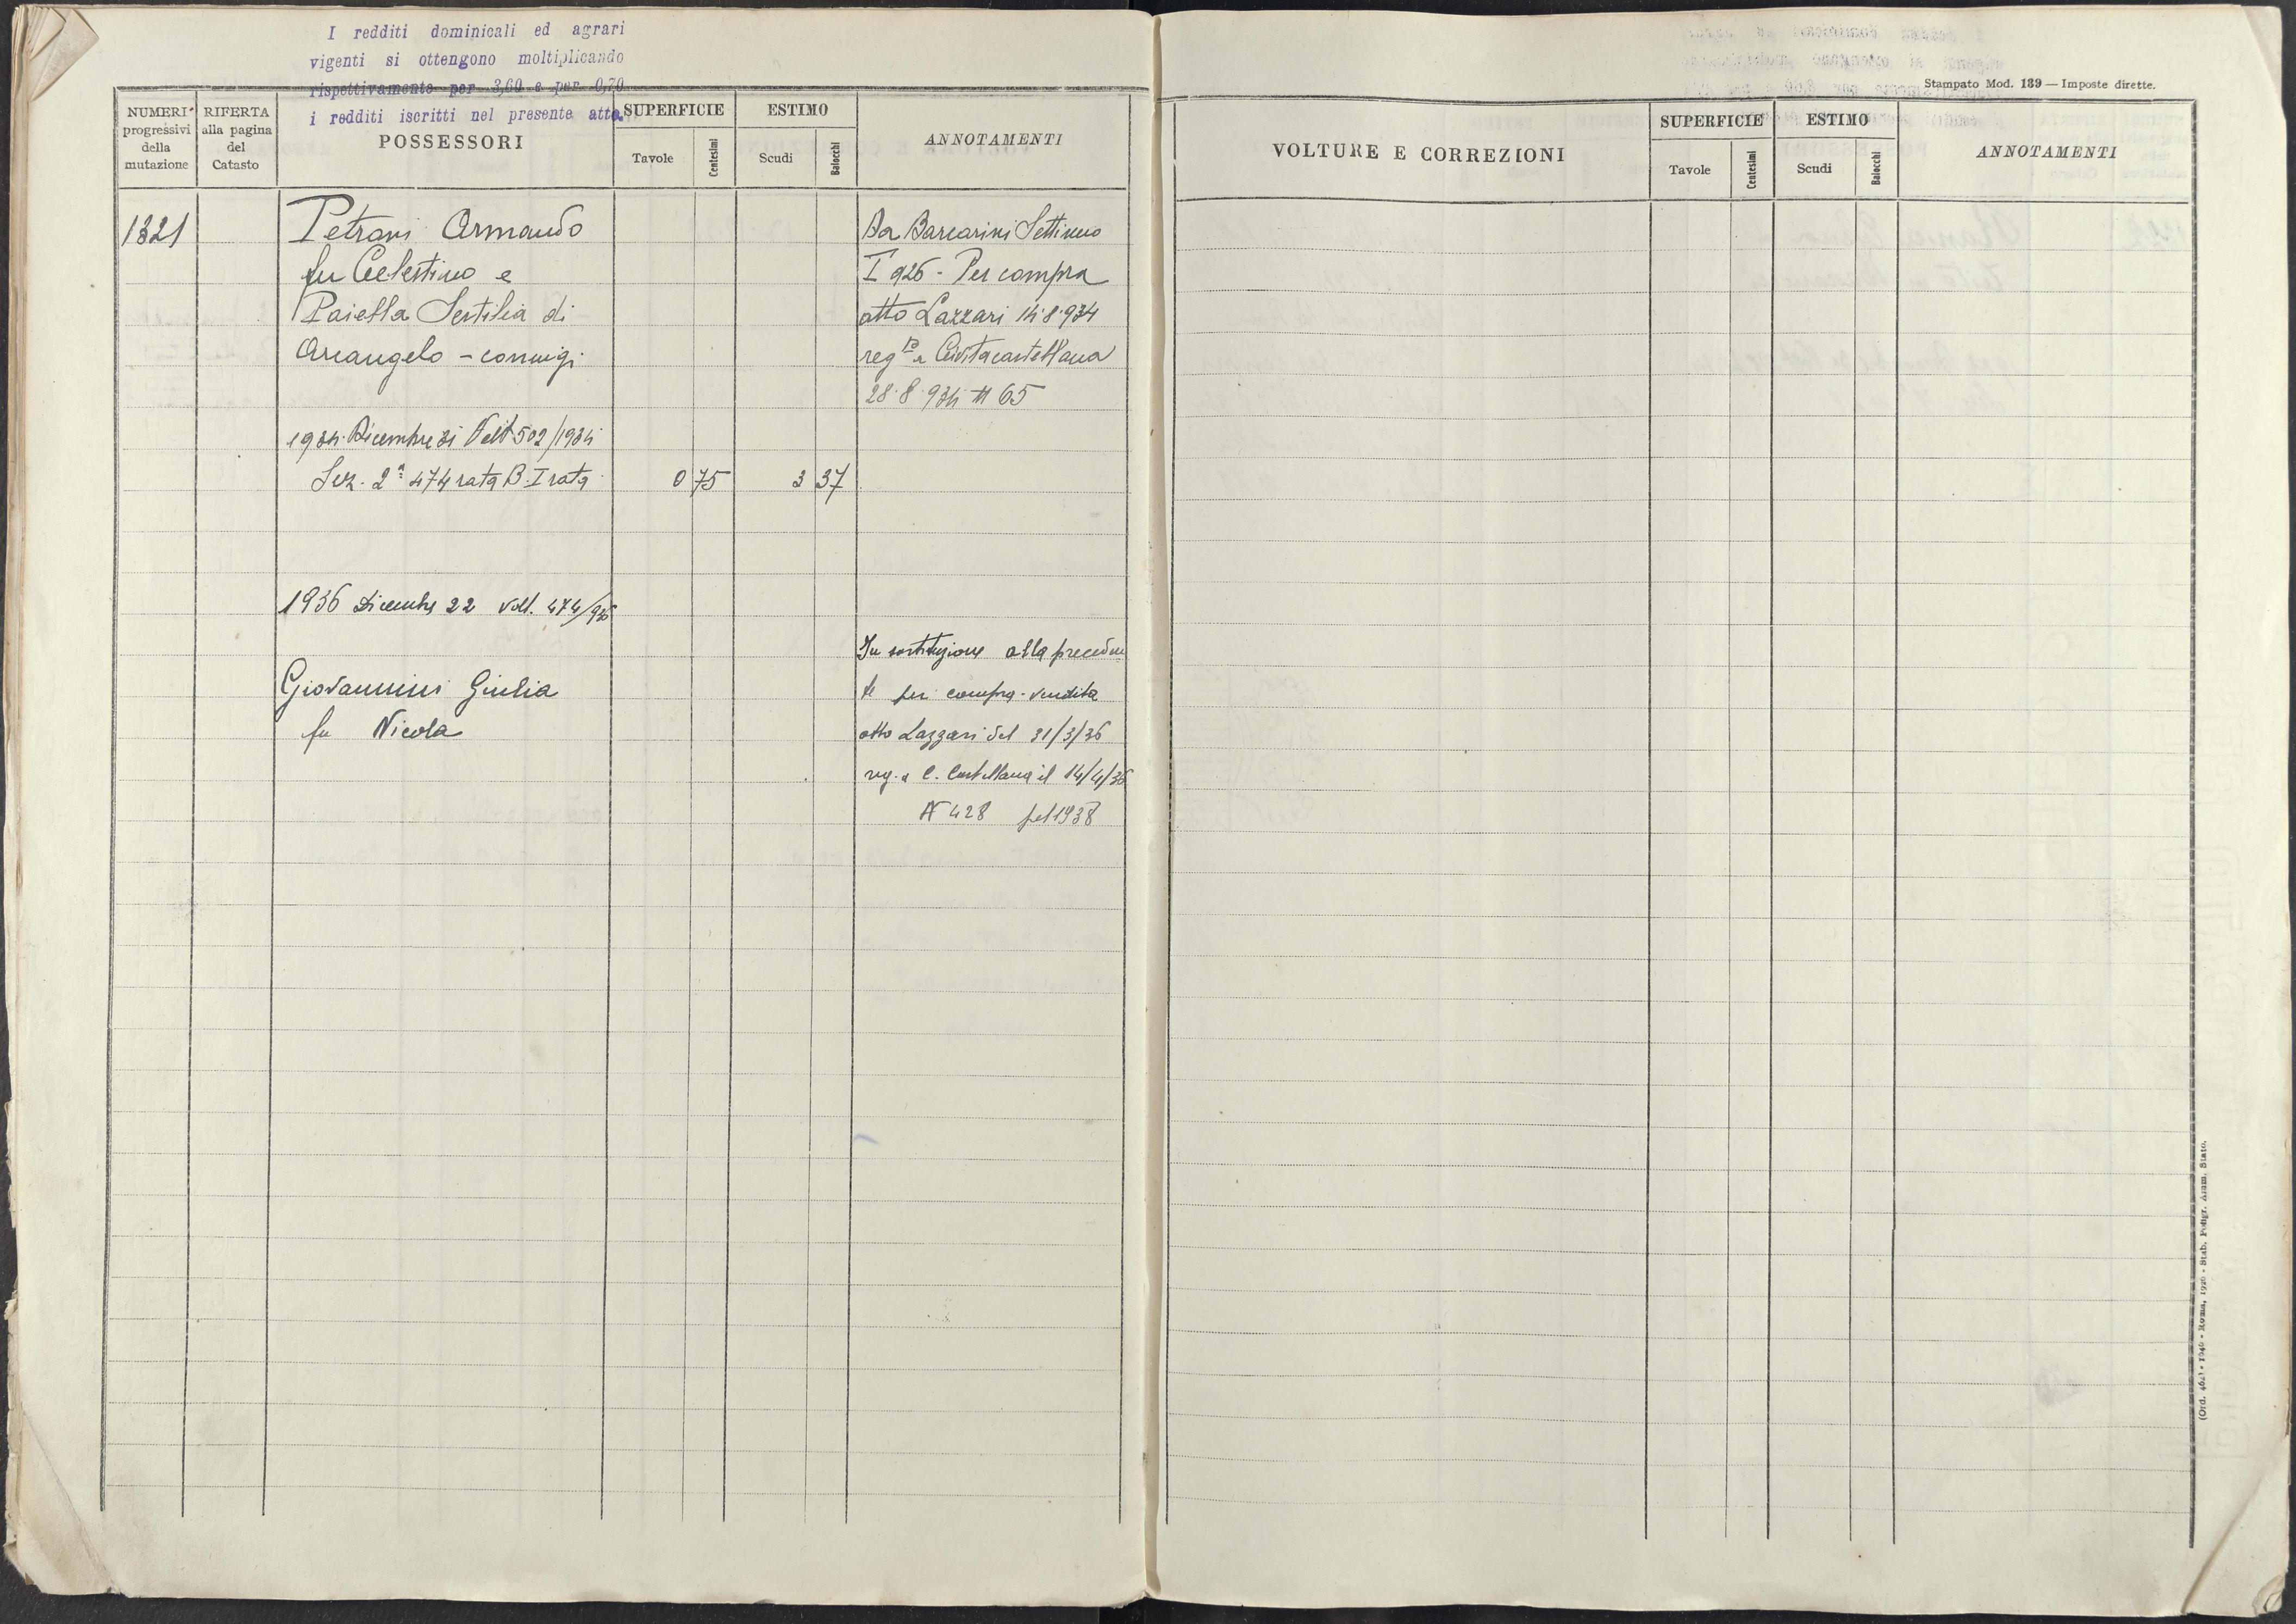 I redditi dominicali ed agrari
vigenti si ottengono moltiplicando
rispettivamente per 3,60 e per 0,70
i redditi iscritti nel presente atto
NUMERI
progressivi
della
mutazione
RIFERTA
alla pagina
del
Catasto
POSSESSORI
SUPERFICIE
Tavole
Centesimi
ESTIMO
Scudi
Baiocchi
ANNOTAMENTI
1321
Petrani Armando
fu Celestino e
Paiella Sestilia di
Arcangelo - coniugi
Da Barcarini Settimio
I 926 - Per compra
atto Lazzari 14.8.934
reg to a Civitacastellana
28.8.934 N 65
1934 Dicembre 31 Volt 502/1934
Sez. 2ª 474 rata B. I rata
0 75
3 37
1936 Dicembre 22 Volt. 474/936
Giovannini Giulia
fu Nicola
In sostituzione alla preceden
te per compra-vendita
atto Lazzari del 31/3/36
reg. a C. Castellana il 14/4/36
N 428 pel 1938
Stampato Mod. 139 — Imposte dirette.
VOLTURE E CORREZIONI
SUPERFICIE
Tavole
Centesimi
ESTIMO
Scudi
Baiocchi
ANNOTAMENTI
Roma, 1926 - Stab. Poligr. Amm. Stato.